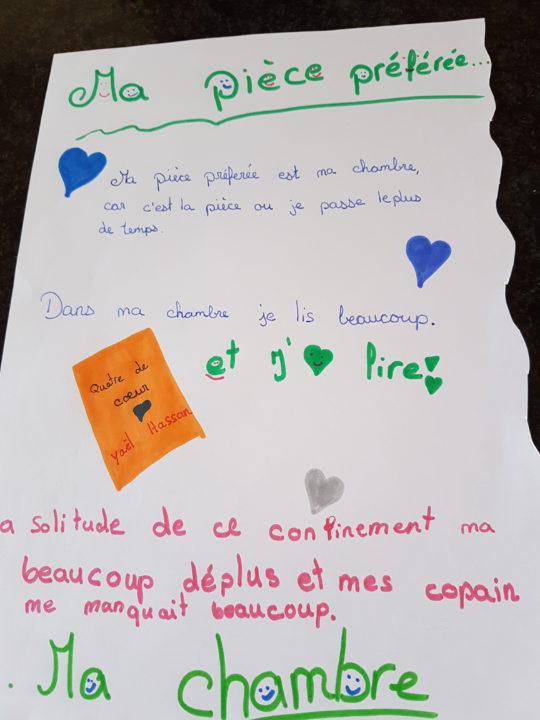 Ma pièce préférée...
Ma pièce préferée est ma chambre,
car c'est la pièce ou je passe leplus
de temps.
Dans ma chambre je lis beaucoup.
et j'♥ lire!
Quatre de
cœur
Yaël Hassan
a solitude de ce confinement ma
beaucoup déplus et mes copain
me manquait beaucoup.
. Ma chambre